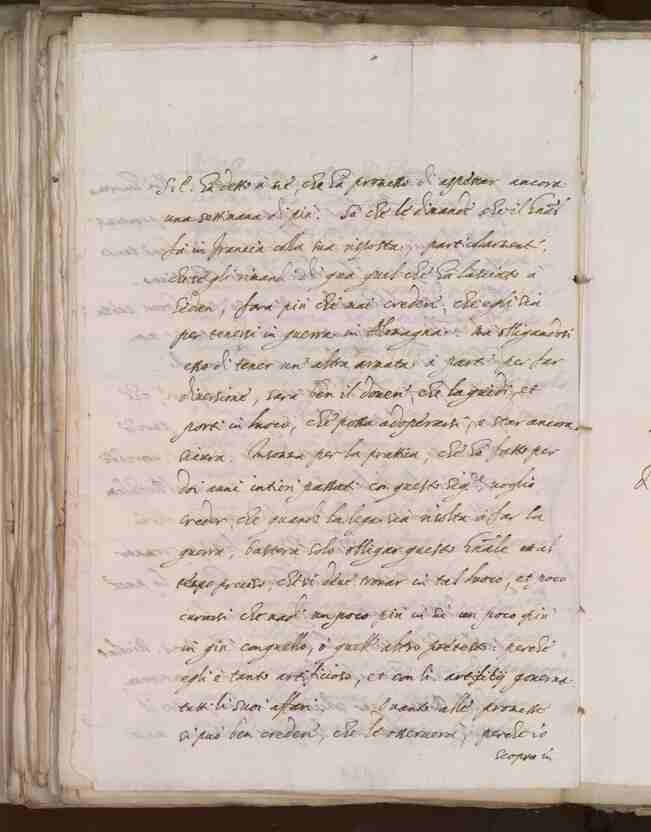 S.E. hà detto à mè, che hà promesso di aspettar ancora
una settimana di più. Sò che le dimande che il
fà in francia colla sua risposta, particolarmente,
che se gli rimandi di quà quel che hà lasciato a
Sedan, farà più che mai credere, che egli sia
per tenersi in guerra in Alemagna: ma obligandosi
esso di tener un' altra armata à parte per far
diversione, sarà ben il dovere, che la guidi, et
porti in luoco, che possa adoperarsi, e star ancora
sicura. Insomma per la prattica, che hò fatto per
doi anni intieri passati con questo Sig.re, voglio
creder, che quando la lega sia risolta à far la
guerra, bastera solo obligar questo al
tempo preciso, che si deve trovar in tal luoco, et poco
curarsi che vada un poco più in sù un poco più
in giù con quello, ò quell' altro pretesto: perche
egli è tanto artificioso, et con li artificij governa
tutti li suoi affari. Quanto alle promesse
si può ben credere, che le osserverà, perche io
scopro in